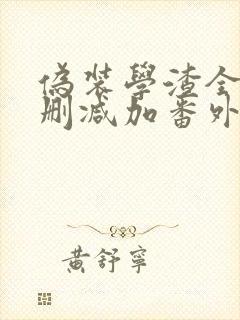 偽裝學渣全
刪減加番外
黃舒寧